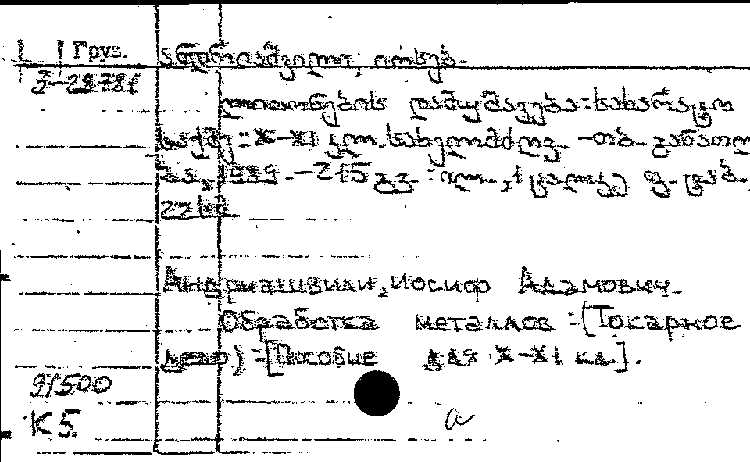 Груз.
ანდრიაშვილი, იოსებ.
3-28781
ლითონების დამუშავება: სახარატო
საქმე: X-XI კლ. სახელმძღვ. -თბ. განათლ
1989. -215 გვ. : ილ., 1 ცალკე ფ. ტაბ.
22 სმ
Андриашвили, Иосиф Адамович.
Обработка металлов :(Токарное
дело) :[Пособие для X-XI кл.].
91500
К 5.
a